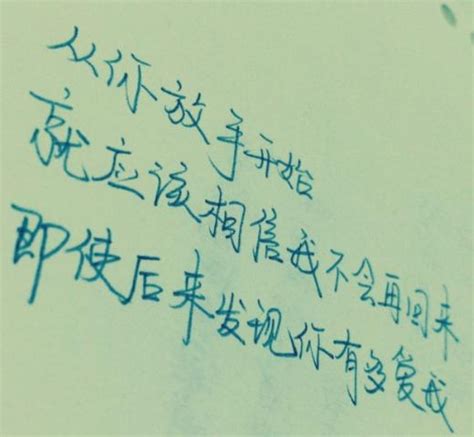 从你放手开始
就应该相信我不会再回来
即使后来发现你有多爱我